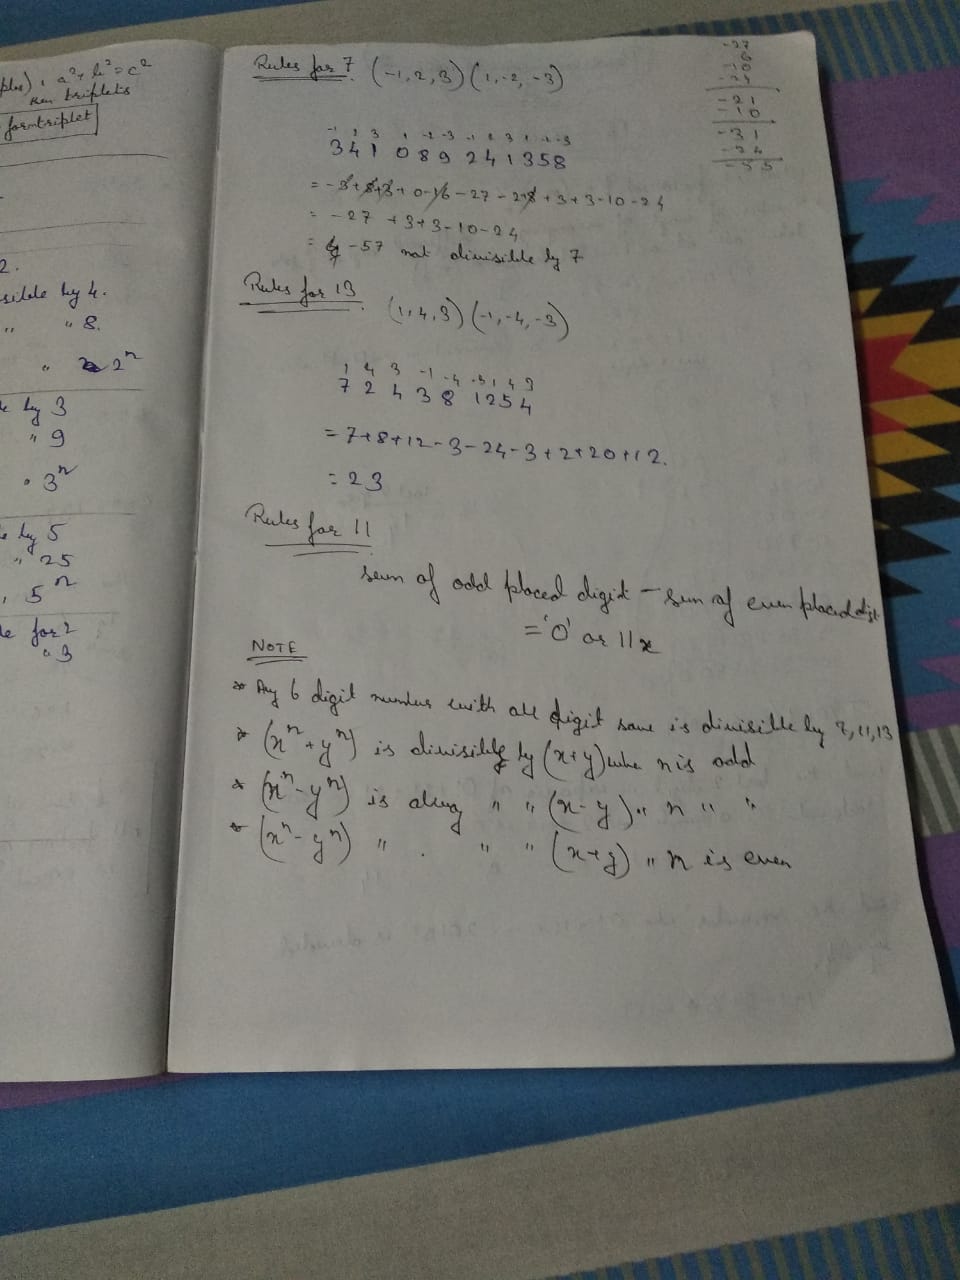 a²+b²=c²
triplets
form triplet
2.
sible by 4.
" " 8.
" 2ⁿ
by 3
" 9
" 3ⁿ
by 5
" 25
, 5ⁿ
for 2
" 3
Rules for 7. (-1, 2, 3) (1, -2, -3)
-27
-21
-10
-31
-24
-55
-1 2 3 1 -2 -3 -1 2 3 1 -2 -3
3 4 1 0 8 9 2 4 1 3 5 8
= -3+8+3+0-16-27-2+8+3+3-10-24
= -27 +3+3-10-24
= -57 not divisible by 7
Rules for 13. (1, 4, 3) (-1, -4, -3)
1 4 3 -1 -4 -3 1 4 3
7 2 4 3 8 1 2 5 4
= 7+8+12-3-24-3+2+20+12.
= 23
Rules for 11
sum of odd placed digit - sum of even placed digit
= '0' or 11x
NOTE
* Any 6 digit number with all digit same is divisible by 7, 11, 13
* (xⁿ+yⁿ) is divisible by (x+y) when n is odd
* (xⁿ-yⁿ) is alway " " (x-y) " n " "
* (xⁿ-yⁿ) " . " " (x+y) " n is even